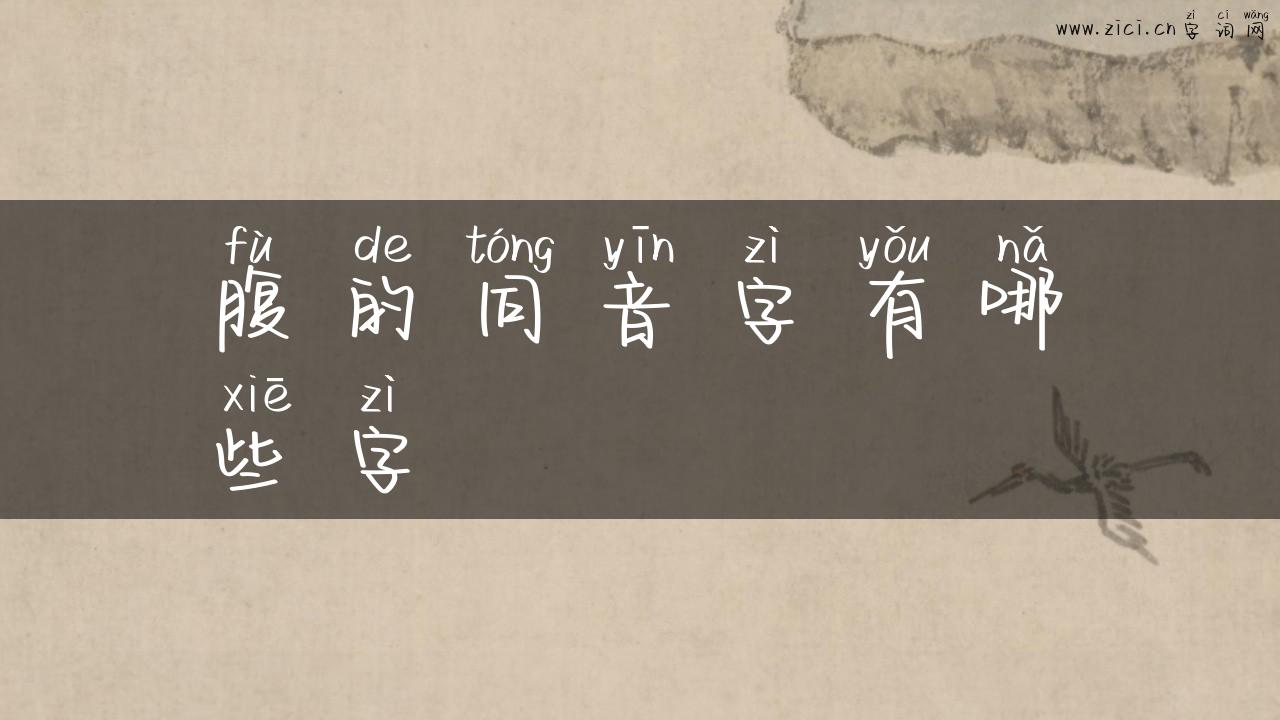 zì cí wǎng
www.zici.cn 字 词 网
fù de tóng yīn zì yǒu nǎ
腹 的 同 音 字 有 哪
xiē zì
些 字